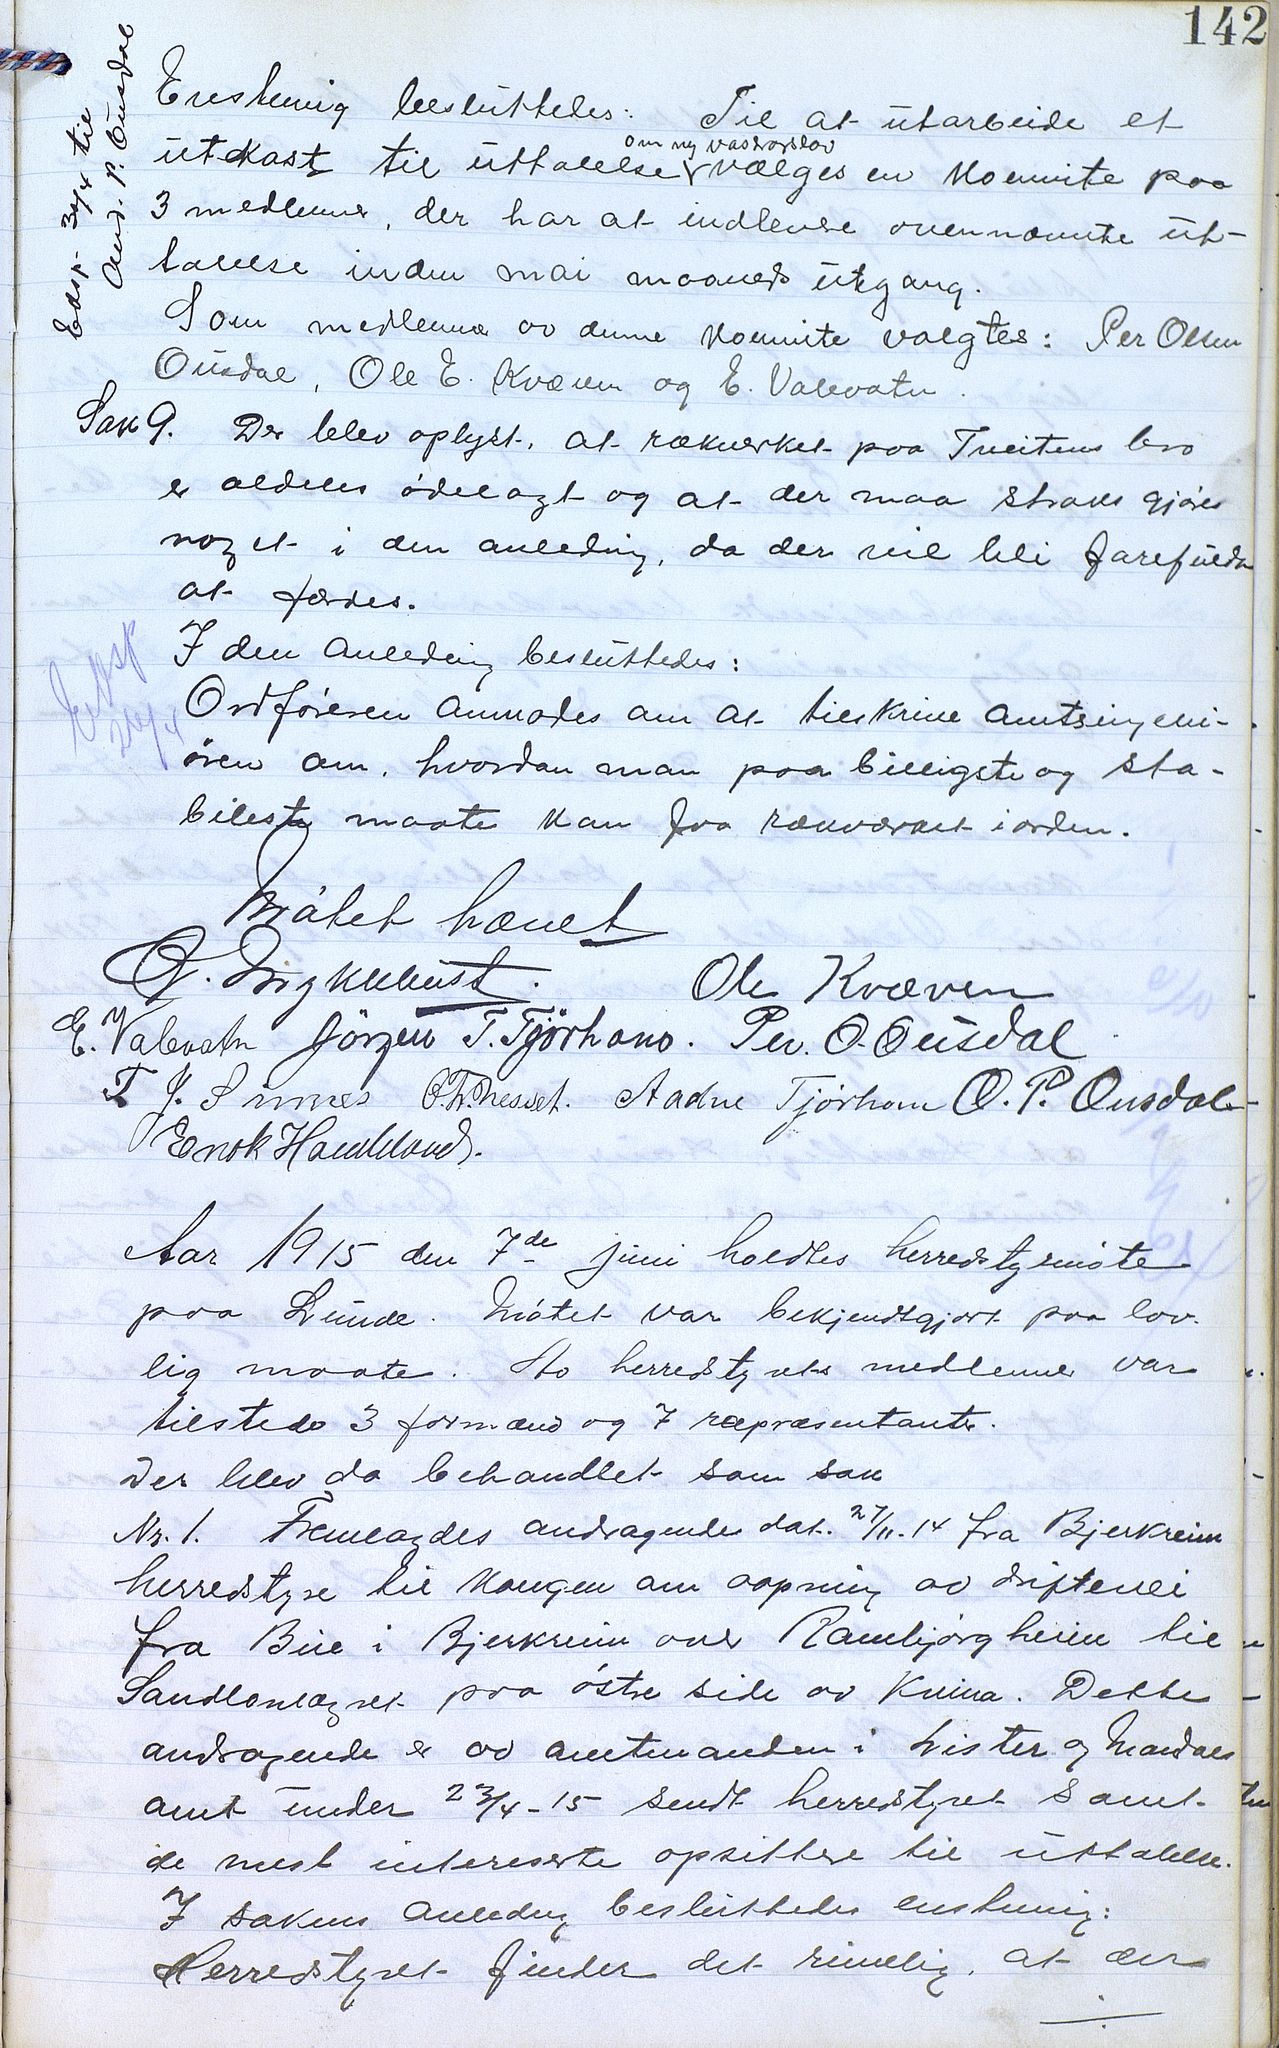 142
Eksp. 30/4 til
And. P. Ousdal
Enstemig besluttedes: Til at utarbeide et
utkast til uttalelse om ny vasdragslov vælges en komite paa
3 medlemmer, der har at indlevere ovennævnte ut-
talelse inden mai maaneds utgang.
Som medlemmer av denne komite valgtes: Per Olsen
Ousdal, Ole E. Kvæven og E. Valevatn.
Sak 9. Der blev oplyst, at rækverket paa Tveitens bro
er aldeles ödelagt og at der maa straks gjöres
noget i den anledning, da der vil bli farefuldt
at færdes.
I den anledning besluttedes:
Eksp
Ordföreren anmodes om at tilskrive amtsingeni-
ören om, hvordan man paa billigste og sta-
bileste maate kan faa rækverket i orden.
Mötet hævet
Ole Kvæven
E. Valevatn Jörgen T. Tjörhom. Per. O. Ousdal
T J. Sinnes O. Tr. nesset. Aadne Tjörhom O. P. Ousdal
Enok Haughland.
Aar 1915 den 7de juni holdtes herredstyremöte
paa Lunde. Mötet var bekjendtgjort paa lov-
lig maate. Av herredstyrets medlemmer var
tilstede 3 formænd og 7 repræsentanter.
Der blev da behandlet som sak
Nr. 1. Fremlagdes andragende dat. 27/11-14 fra Bjerkreim
herredstyre til Kongen om aapning av driftevei
fra Bue i Bjerkreim over Rambjörgheien til
Sandvand paa östre side av Kvina. Dette
andragende er av amtmanden i Lister og Mandals
amt under 23/4-15 sendt herredstyret samt
de mest intereserte opsittere til uttalelse.
I sakens anledning besluttedes enstemig:
Herredstyret finder det rimelig, at der